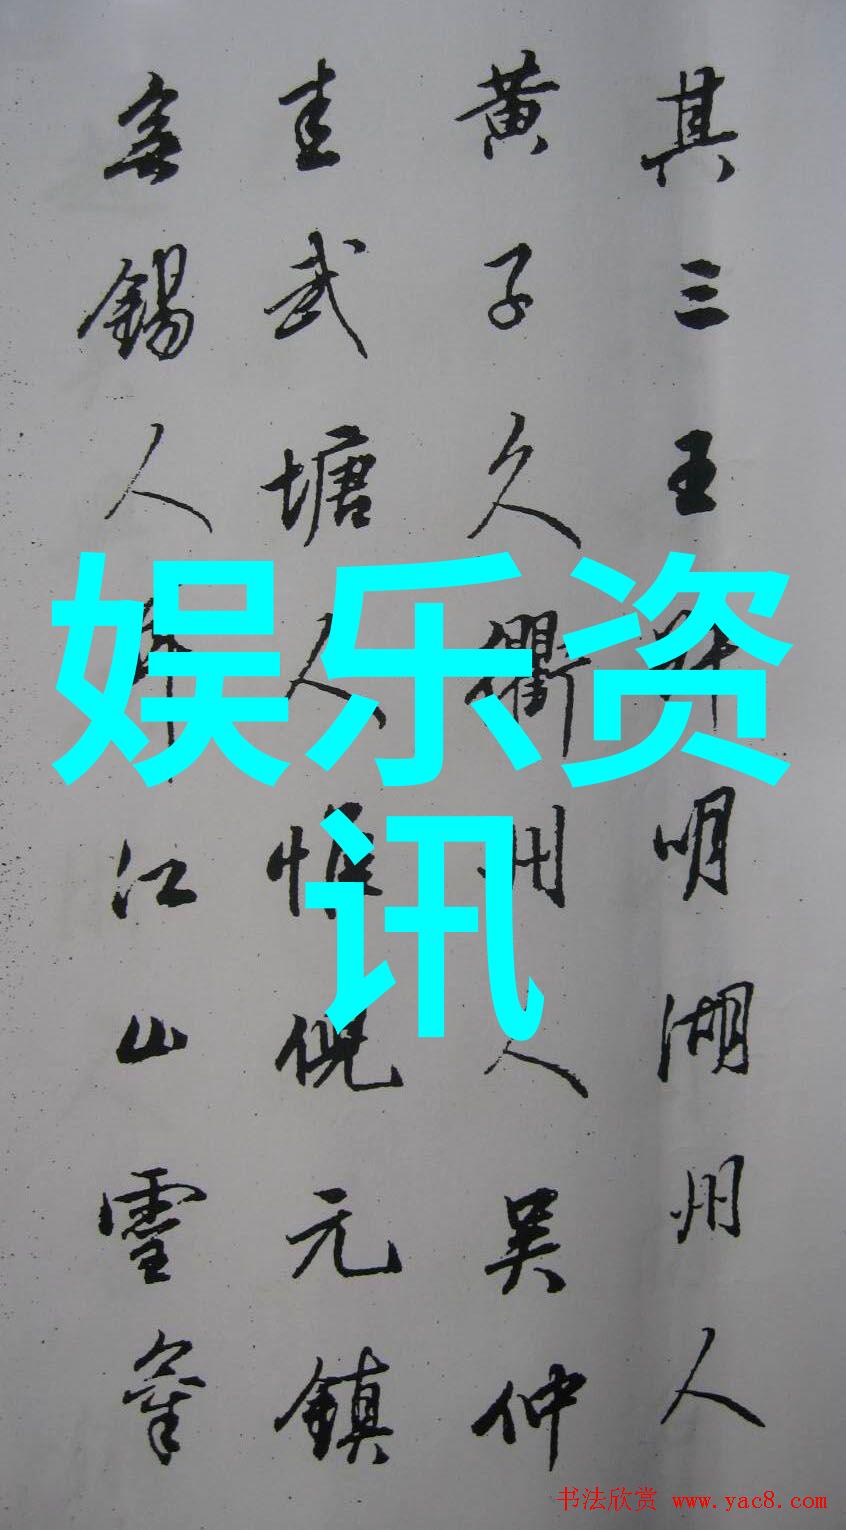 其三王明湖州人
黄子久衢州人吴仲
圭武塘人惟倪元鎮
无錫人江山靈氣
娱乐资
讯
书法欣赏 www.yac8.com